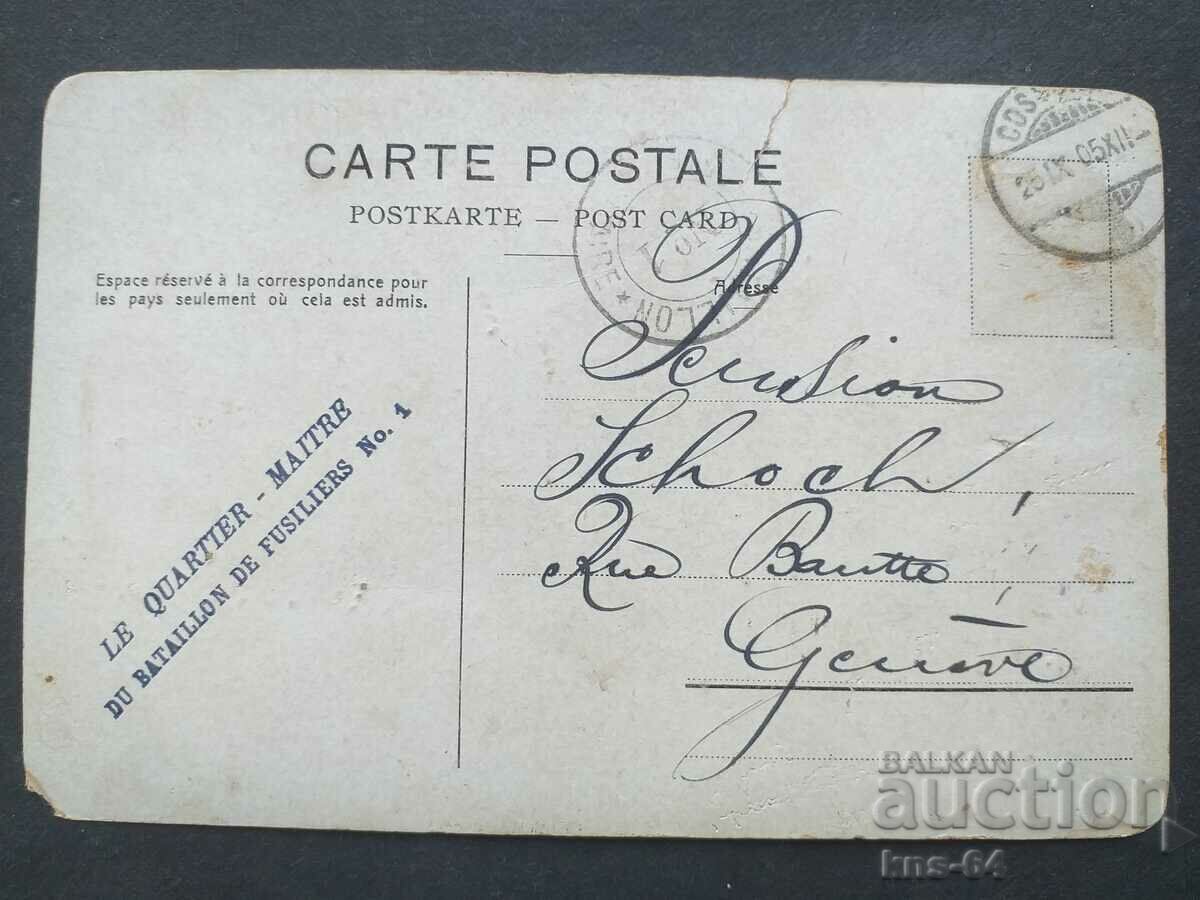 CARTE POSTALE
POSTKARTE — POST CARD
Espace réservé à la correspondance pour
les pays seulement où cela est admis.
Adresse
25 IX 05 XII
LE QUARTIER - MAITRE
DU BATAILLON DE FUSILIERS No. 1
Pension
Schoch,
Rue Bautte,
Genève
BALKAN
auction
kns-64